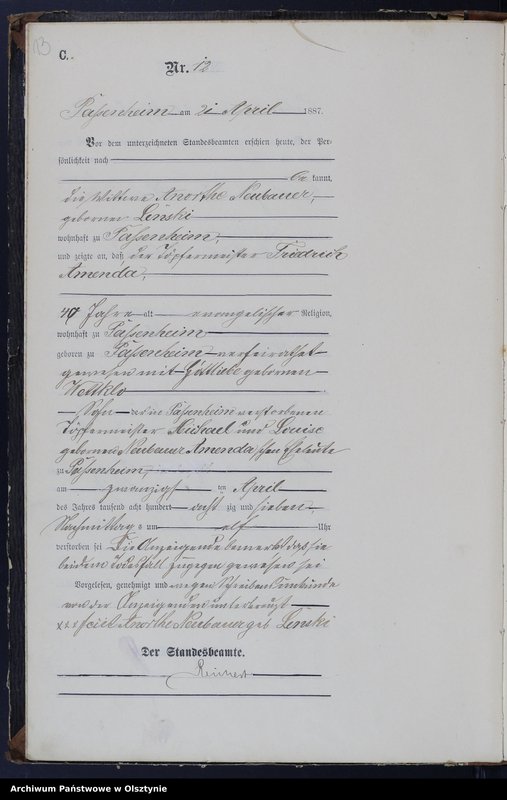 13
C.
Nr. 12
Passenheim am 21 April 1887.
Vor dem unterzeichneten Standesbeamten erschien heute, der Per-
sönlichkeit nach
be kannt,
die Wittwe Anorthe Neubauer,
geborner Lenski
wohnhaft zu Passenheim,
und zeigte an, daß der Töpfermeister Friedrich
Amenda,
47 Jahre alt evangelischer Religion,
wohnhaft zu Passenheim
geboren zu Passenheim verheirathet
gewesen mit Gottliebe gebornen
Wettklo
Sohn der in Passenheim verstorbenen
Töpfermeister Michael und Louise
geborne Neubauer Amenda'schen Eheleute
zu Passenheim,
am zwanzigsten April
des Jahres tausend acht hundert acht zig und sieben
Nachmittag s um elf Uhr
verstorben sei Die Anzeigende bemerkt das sie
bei dem Todesfall zugegen gewesen sei
Vorgelesen, genehmigt und wegen Schreibens Unkunde
von der Anzeigenden unterkreuzt
xxx Anorthe Neubauer geb. Lenski
Der Standesbeamte.
Reinert
Archiwum Państwowe w Olsztynie